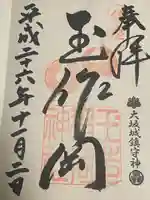 奉拝
大坂城鎮守神
玉作岡
平成二十六年十一月二日